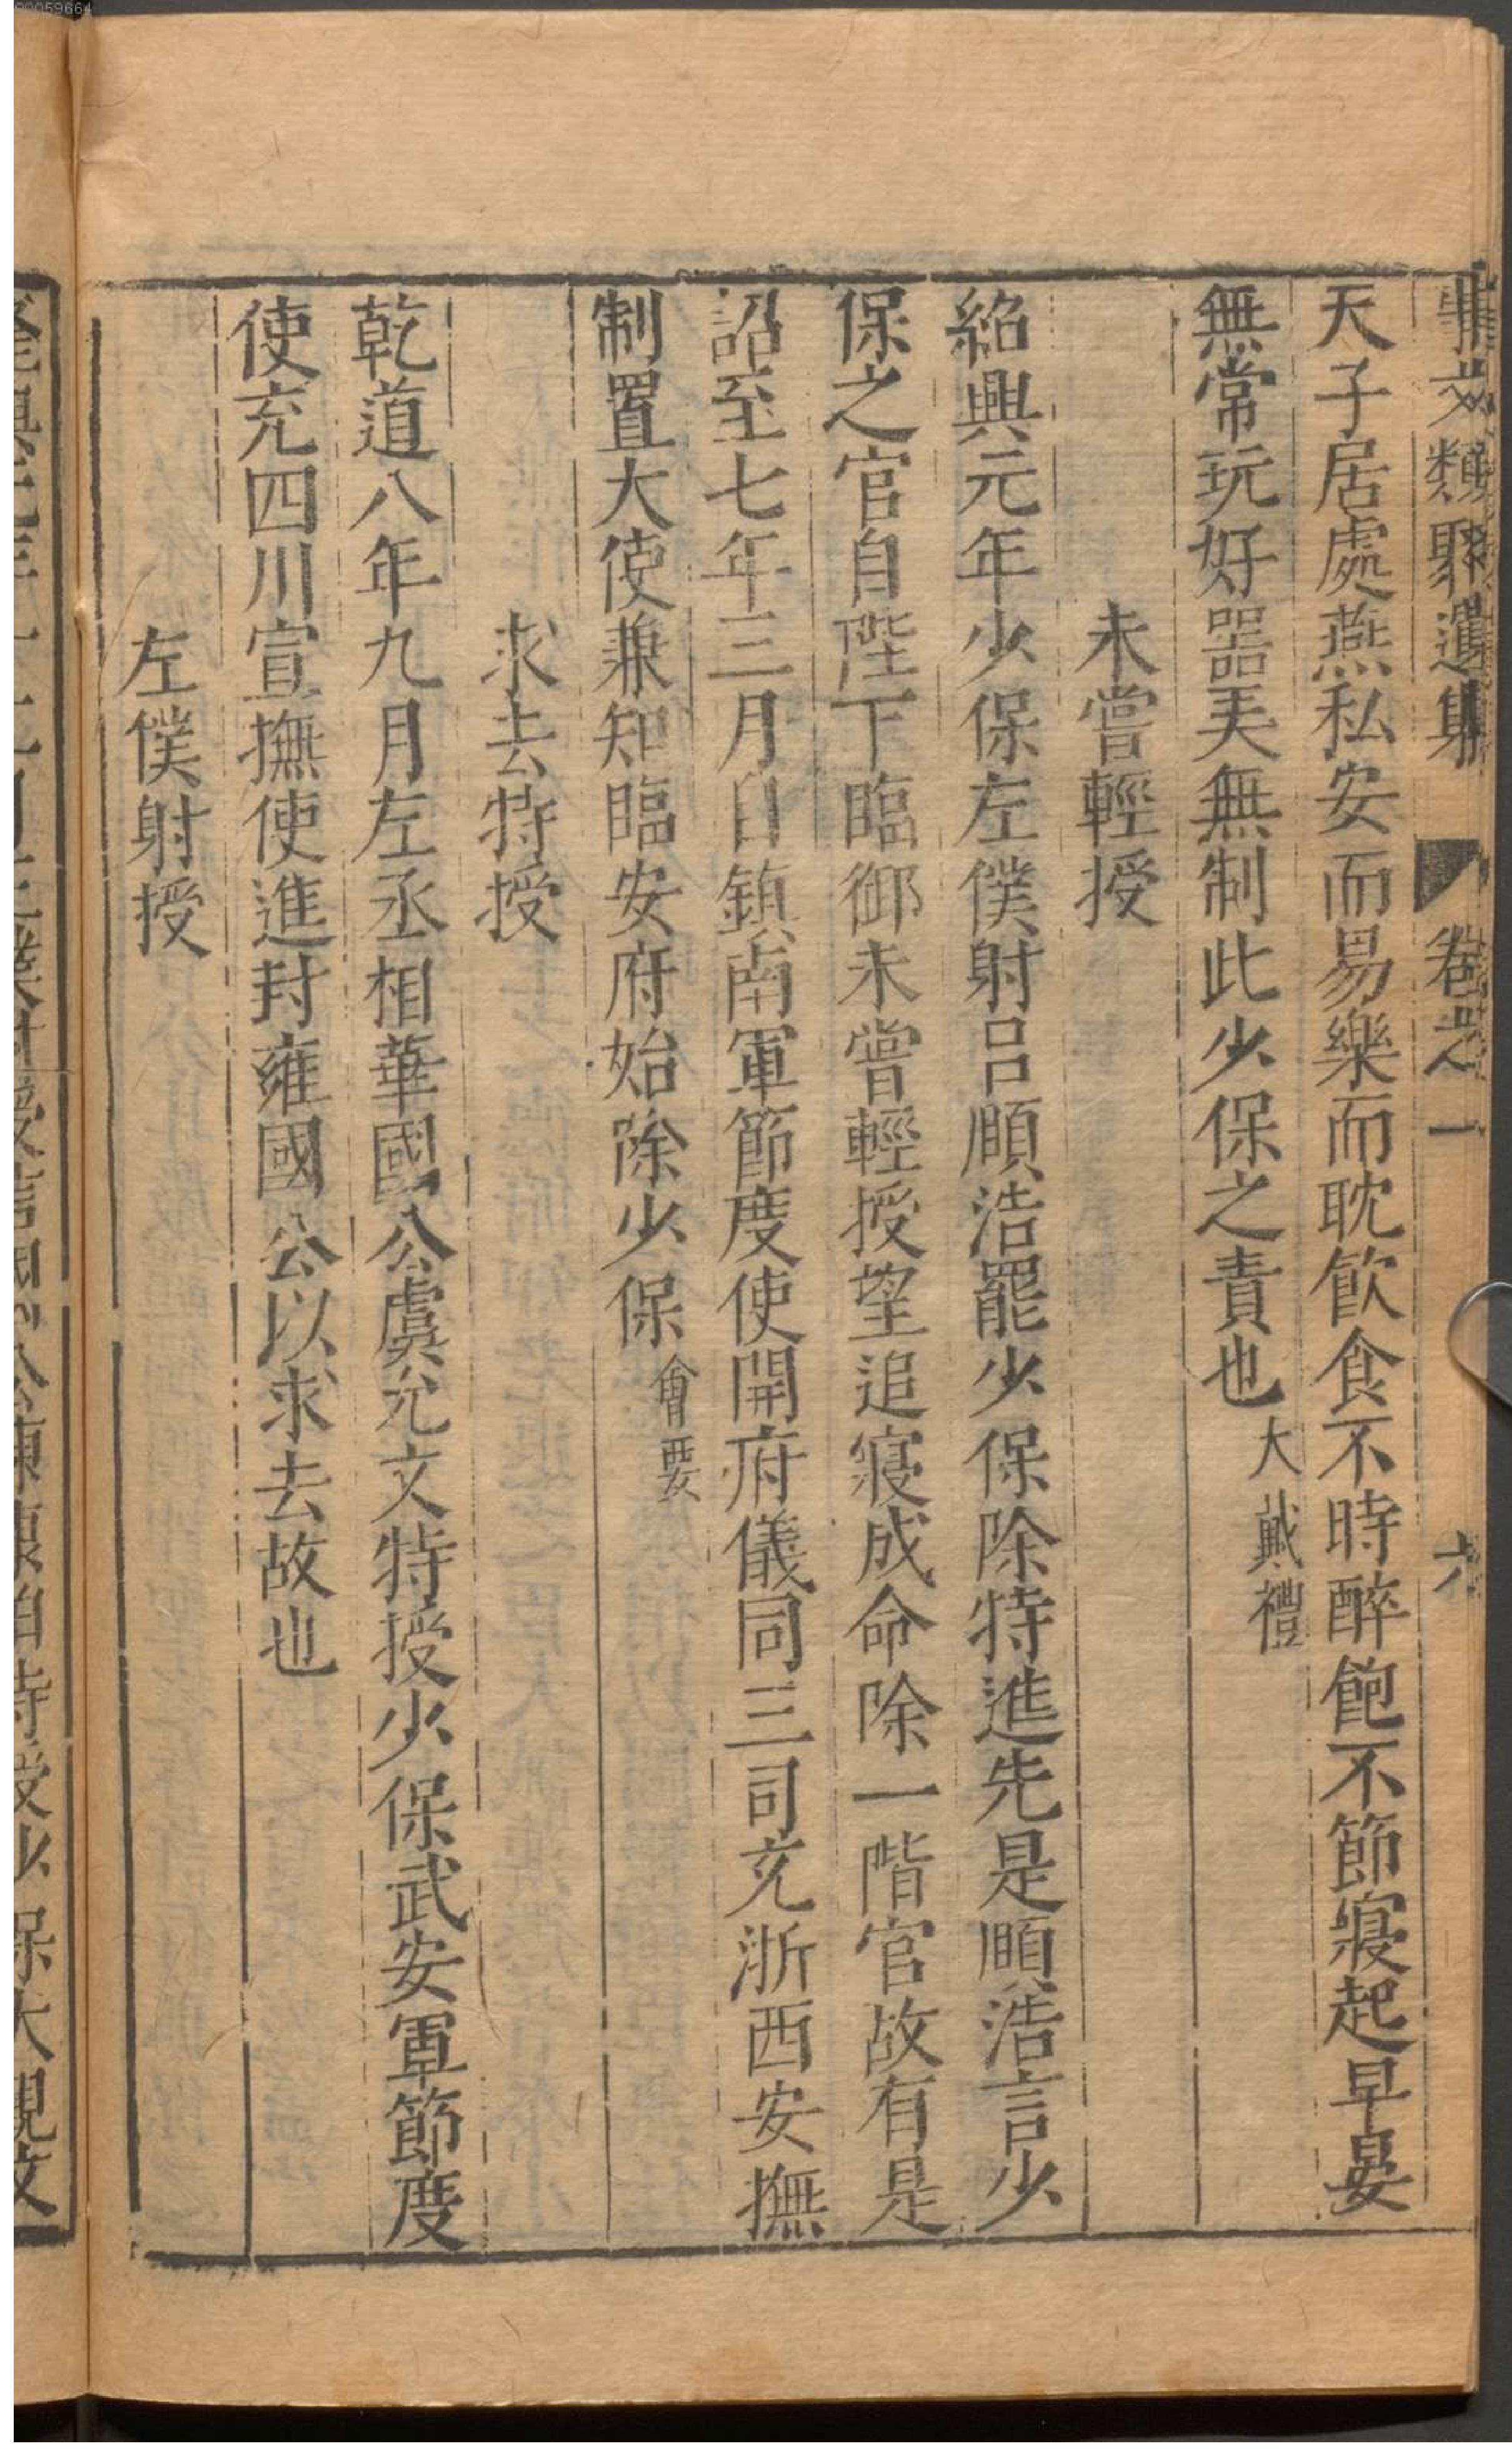 00059664
事文類聚遺集 卷之一 六
天子居處燕私安而易樂而耽飲食不時醉飽不節寢起早晏
無常玩好器美無制此少保之責也大戴禮
未嘗輕授
紹興元年少保左僕射呂頤浩罷少保除特進先是頤浩言少
保之官自陛下臨御未嘗輕授望追寢成命除一階官故有是
詔至七年三月自鎮南軍節度使開府儀同三司充浙西安撫
制置大使兼知臨安府始除少保會要
求去特授
乾道八年九月左丞相華國公虞允文特授少保武安軍節度
使充四川宣撫使進封雍國公以求去故也
左僕射授